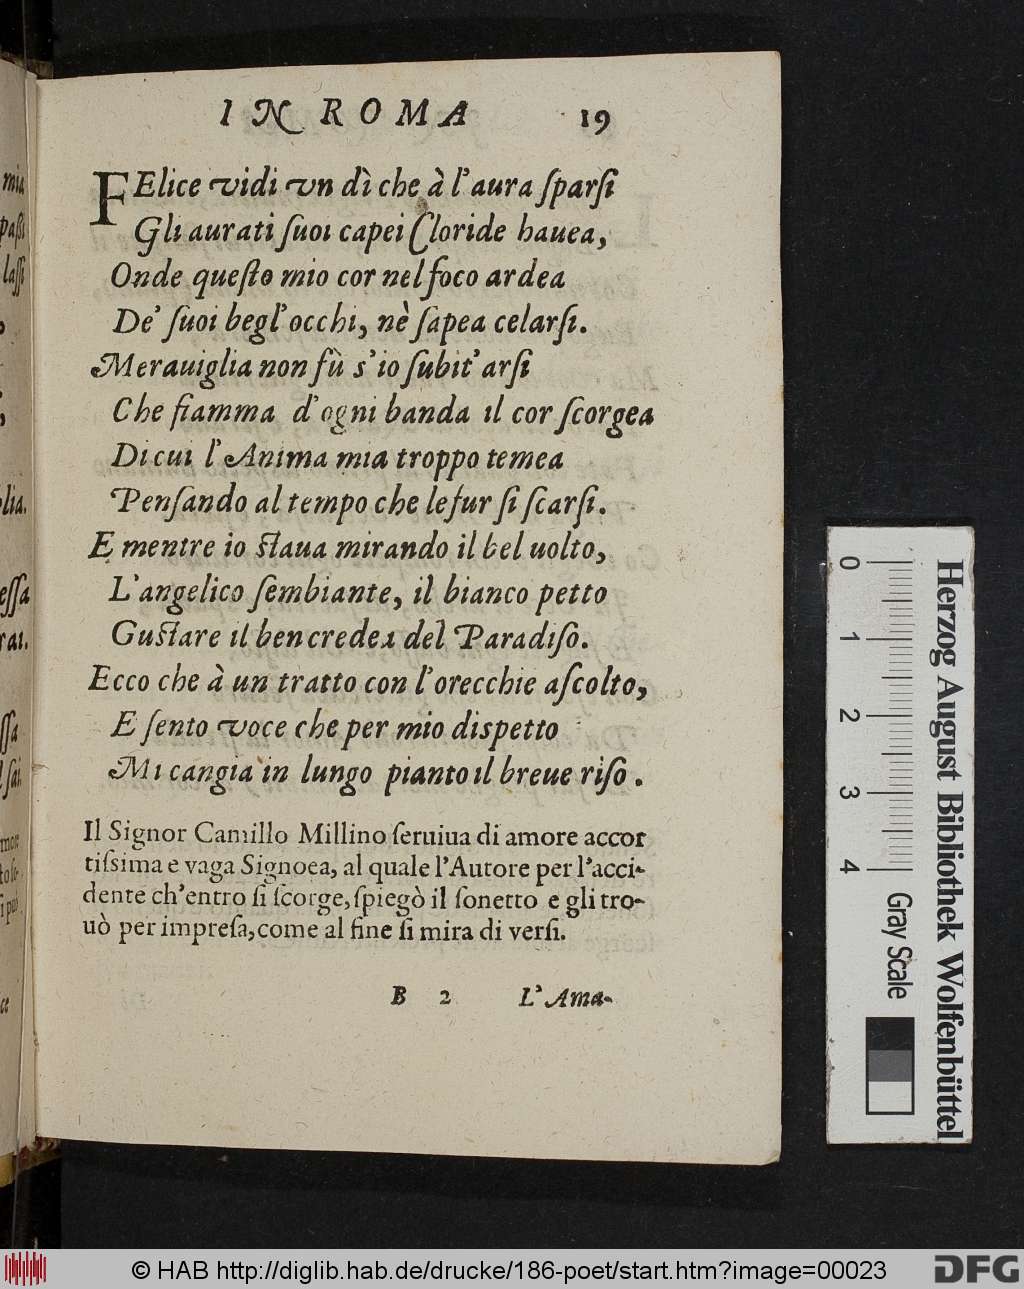 IN ROMA 19
FElice vidi vn dì che à l'aura ſparſi
Gli aurati ſuoi capei Cloride hauea,
Onde queſto mio cor nel foco ardea
De' ſuoi begl'occhi, nè ſapea celarſi.
Merauiglia non fù s'io ſubit' arſi
Che fiamma d'ogni banda il cor ſcorgea
Di cui l'Anima mia troppo temea
Penſando al tempo che le fur ſi ſcarſi.
E mentre io ſtaua mirando il bel uolto,
L'angelico ſembiante, il bianco petto
Guſtare il ben credea del Paradiſo.
Ecco che à un tratto con l'orecchie aſcolto,
E ſento voce che per mio dispetto
Mi cangia in lungo pianto il breue riſo.
Il Signor Camillo Millino ſeruiua di amore accor
tiſsima e vaga Signoea, al quale l'Autore per l'acci-
dente ch'entro ſi ſcorge, ſpiegò il ſonetto e gli tro-
uò per impreſa, come al fine ſi mira di verſi.
B 2 L'Ama-
mia
laſſi
olia.
eſſa
rai.
ſſa
ſai.
0 1 2 3 4 Gray Scale
Herzog August Bibliothek Wolfenbüttel
© HAB http://diglib.hab.de/drucke/186-poet/start.htm?image=00023
DFG